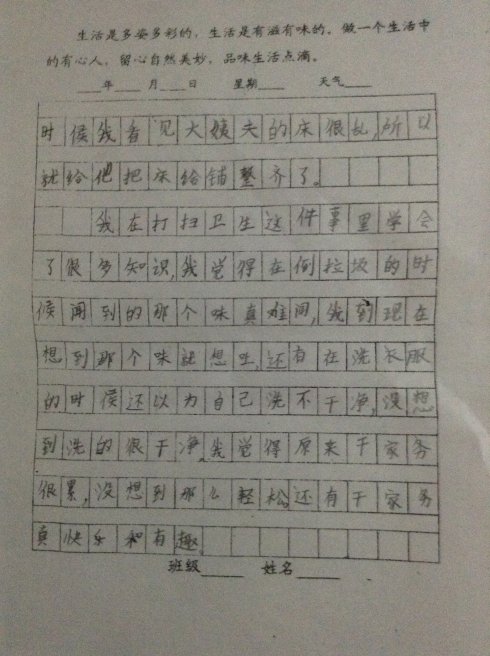 生活是多姿多彩的，生活是有滋有味的。做一个生活中
的有心人，留心自然美妙，品味生活点滴。
____年____月____日 星期____ 天气____
时候我看见大姨夫的床很乱，所以
就给他把床给铺整齐了。
我在打扫卫生这件事里学会
了很多知识，我觉得在倒垃圾的时
候闻到的那个味真难闻，我到现在
想到那个味就想吐，还有在洗衣服
的时候还以为自己洗不干净，没想
到洗的很干净，我觉得原来干家务
很累，没想到那么轻松，还有干家务
真快乐和有趣。
班级____ 姓名____